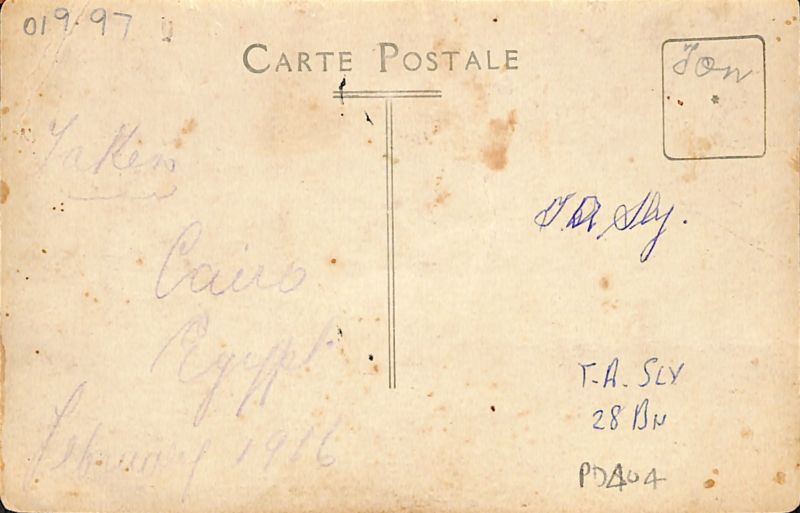 019.97
CARTE POSTALE
Taken
Cairo
Egypt
February 1916
Sly.
T.A. SLY
28 BN
PD404